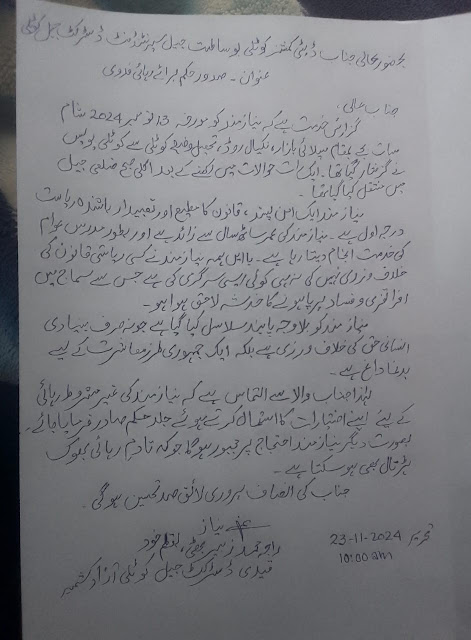 بحضور عالی جناب ڈپٹی کمشنر کوٹلی بوساطت جیل سپرنٹنڈنٹ ڈسٹرکٹ جیل کوٹلی
عنوان - صدور حکم برائے رہائی فوری
جناب عالی!
گزارش خدمت ہے کہ نیاز مند کو مورخہ 13 نومبر 2024 شام
سات بجے بمقام سپلائی بازار، نکیال روڈ، تحصیل و ضلع کوٹلی سے کوٹلی پولیس
نے گرفتار کیا تھا۔ ایک رات حوالات میں رکھنے کے بعد اگلی صبح ضلعی جیل
میں منتقل کیا گیا تھا۔
نیاز مند ایک امن پسند، قانون کا مطیع اور تعبیدار باشندہ ریاست
درجہ اول ہے۔ نیاز مند کی عمر ساٹھ سال سے زائد ہے اور بطور مدرس عوام
کی خدمت انجام دیتا رہا ہے۔ بایں ہمہ نیاز مند نے کسی ریاستی قانون کی
خلاف ورزی نہیں کی نہ ہی کوئی ایسی سرگرمی کی ہے جس سے سماج میں
افراتفری و فساد برپا ہونے کا خدشہ لاحق ہوا ہو۔
نیاز مند کو بلاوجہ پابند سلاسل کیا گیا ہے جو نہ صرف بنیادی
انسانی حق کی خلاف ورزی ہے بلکہ ایک جمہوری طرز معاشرت کے لیے
بدنما داغ ہے۔
لہٰذا جناب والا سے التماس ہے کہ نیاز مند کی غیر مشروط رہائی
کے لیے اپنے اختیارات کا استعمال کرتے ہوئے جلد حکم صادر فرمایا جائے۔
بصورت دیگر نیاز مند احتجاج پر مجبور ہو گا جو کہ تادم رہائی بھوک
ہڑتال بھی ہو سکتا ہے۔
جناب کی انصاف پروری لائق صد تحسین ہو گی۔
نیاز
راجہ زبیر بھٹی، بقلم خود
قیدی ڈسٹرکٹ جیل کوٹلی آزاد کشمیر
تحریر 23-11-2024
10:00 am